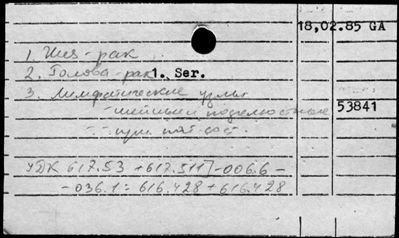 18,02.85 GA
1. Шея - рак
2. Голова - рак 1. Ser.
3. Лимфатические узлы
- шейные и подчелюстные 53841
УДК 617.53 + 617.51]-006.6 -
- 036.1 : 616.428 + 616.428